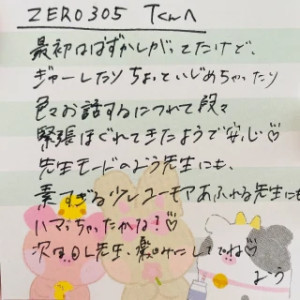 ZERO305 Tくんへ
最初ははずかしがってたけど、
ギャーしたり ちょっといじめちゃったり
色々お話するにつれて段々
緊張ほぐれてきたようで安心♡
先生モードのゆう先生にも、
素すぎる少しユーモアあふれる先生にも
ハマっちゃったかな！♡
次はOL先生、楽しみにしててね♡
ゆう